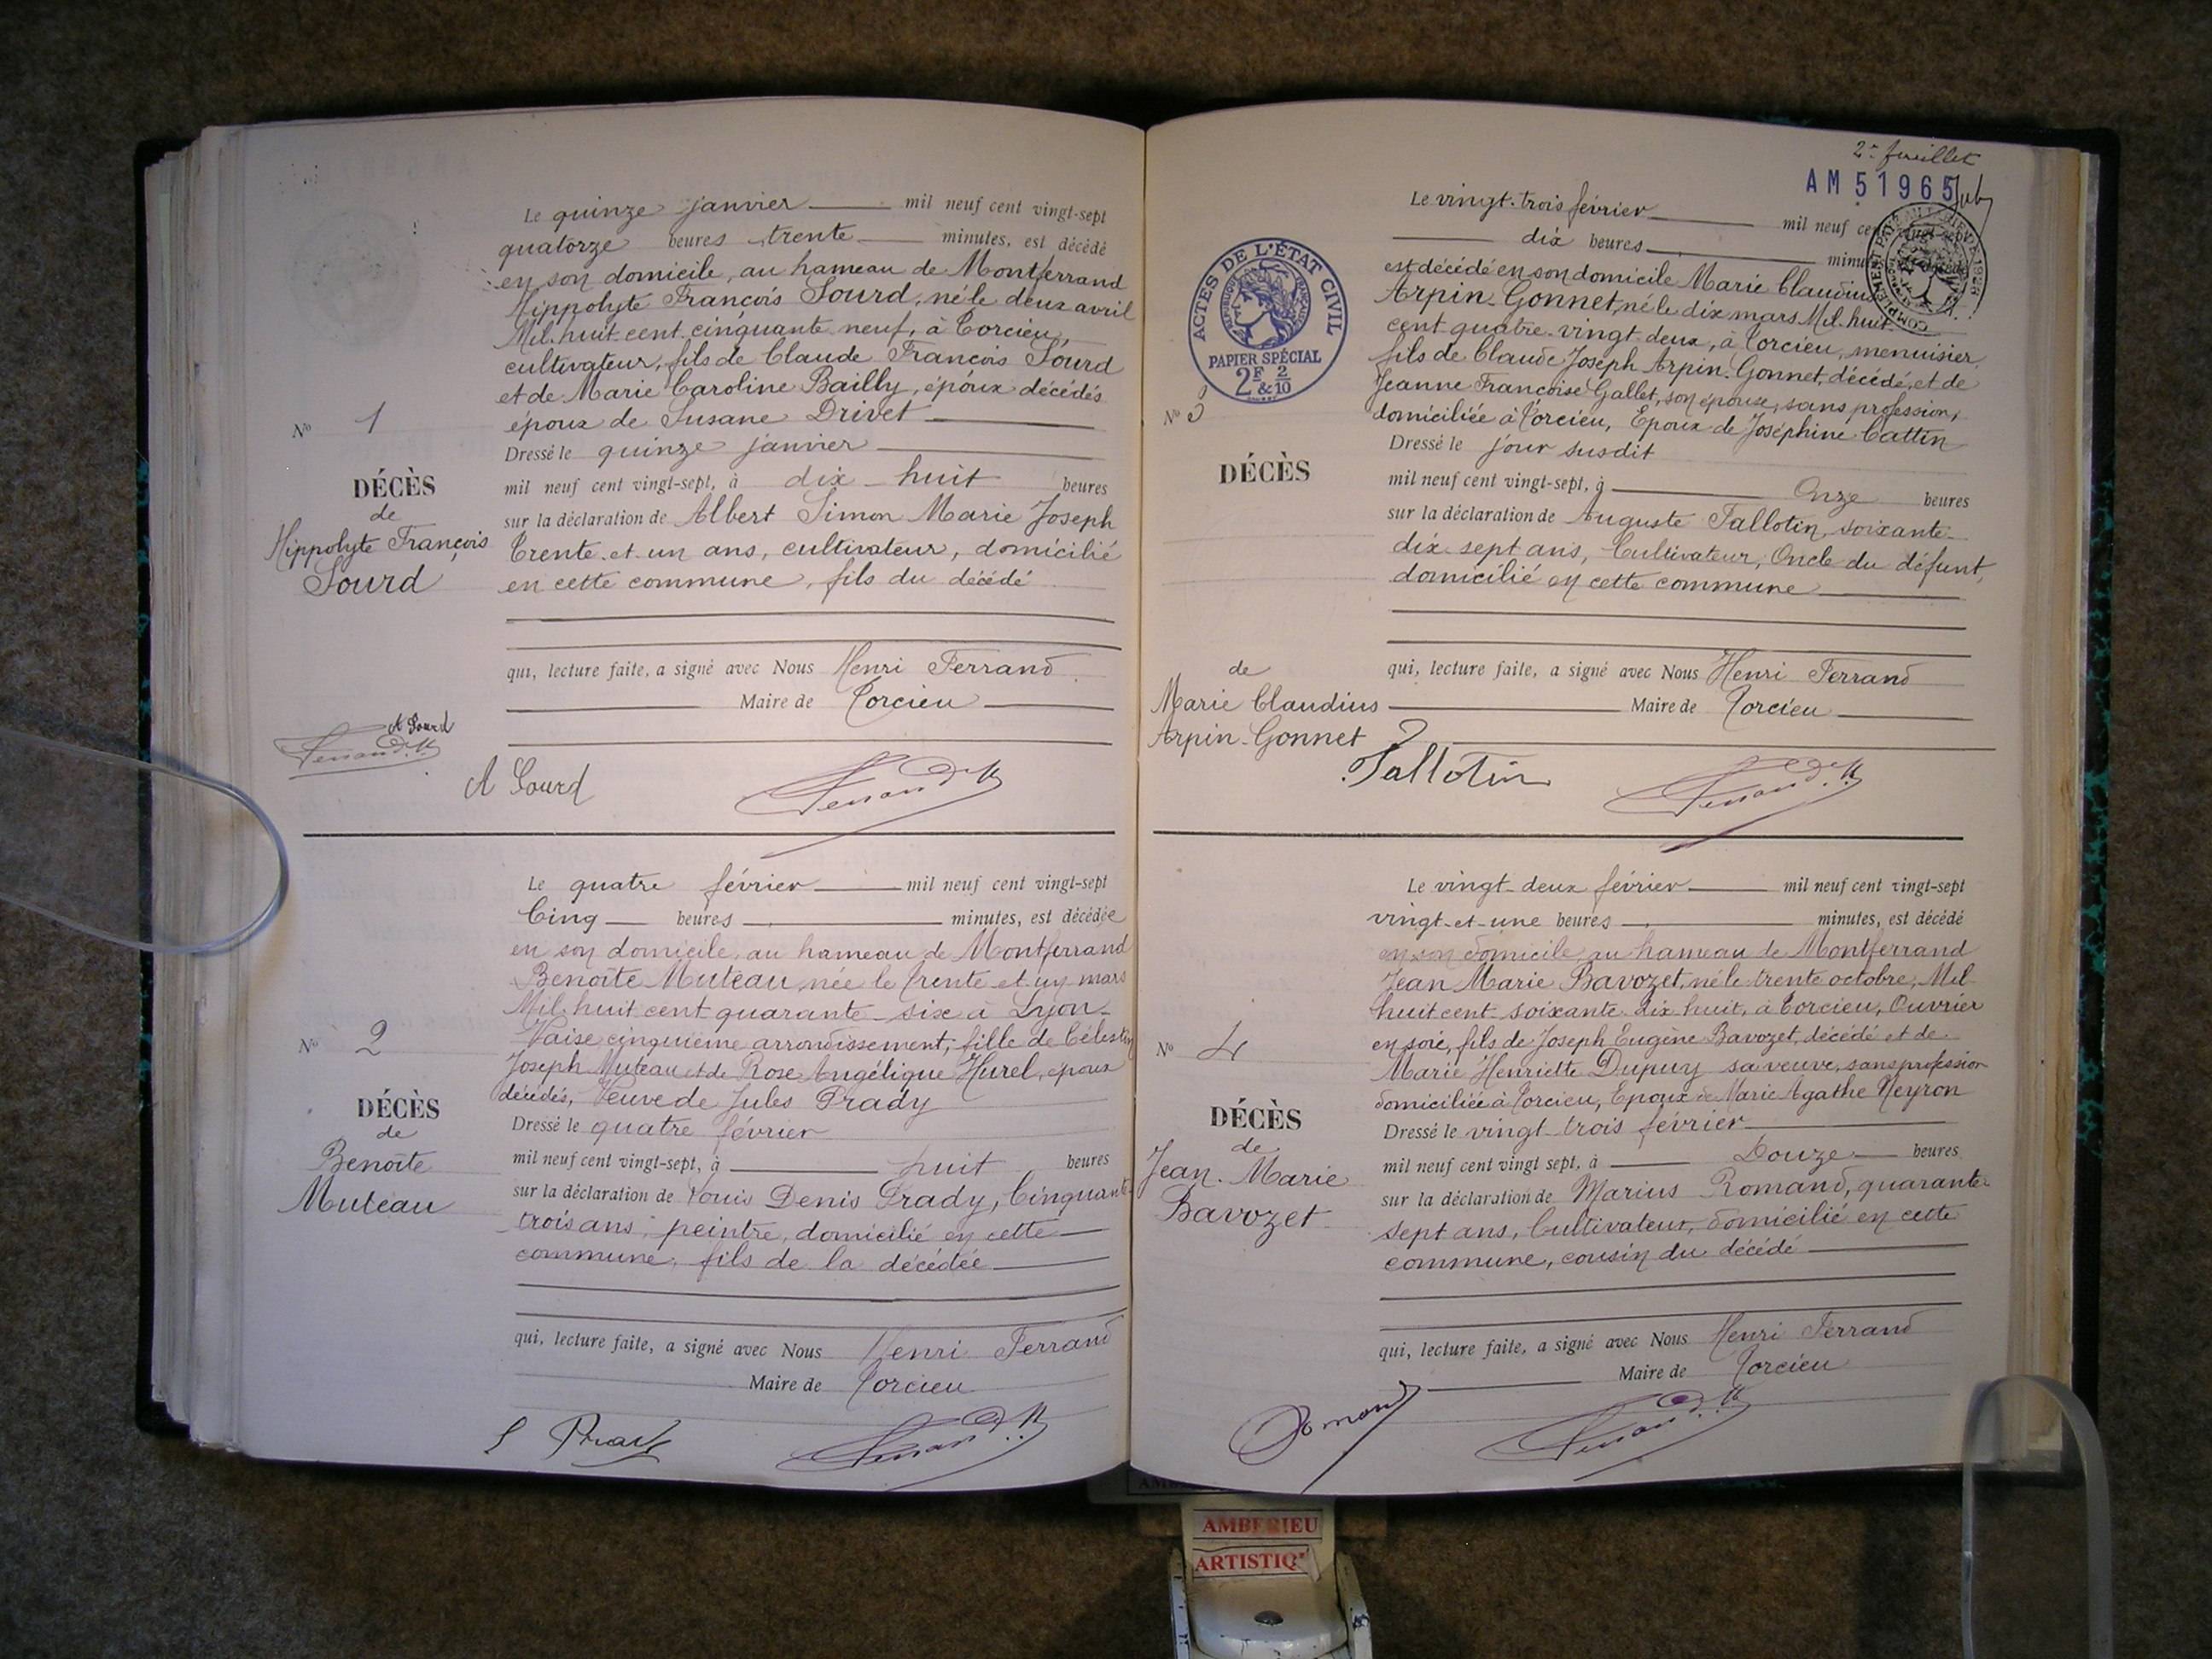 Le quinze janvier mil neuf cent vingt-sept
quatorze heures trente minutes, est décédé
en son domicile, au hameau de Montferrand
Hippolyte François Sourd, né le deux avril
Mil-huit-cent-cinquante-neuf, à Torcieu,
cultivateur, fils de Claude François Sourd
et de Marie Caroline Bailly, époux décédés
époux de Susane Drivet
Nº 1
Dressé le quinze janvier
DÉCÈS
de
Hippolyte François
Sourd
mil neuf cent vingt-sept, à dix-huit heures
sur la déclaration de Albert Simon Marie Joseph
Trente-et-un ans, cultivateur, domicilié
en cette commune, fils du décédé
qui, lecture faite, a signé avec Nous Henri Ferrand
Maire de Torcieu
A Sourd
Ferrand.H
A Sourd
Ferrand.H
Le quatre février mil neuf cent vingt-sept
Cinq heures minutes, est décédée
en son domicile, au hameau de Montferrand
Benoîte Muteau, née le trente et un mars
Mil-huit cent quarante-six à Lyon-
Vaise cinquième arrondissement, fille de Célestin
Nº 2
Joseph Muteau et de Rose Angélique Hurel, époux
décédés, Veuve de Jules Prady
DÉCÈS
de
Benoîte
Muteau
Dressé le quatre février
mil neuf cent vingt-sept, à huit heures
sur la déclaration de Louis Denis Prady, Cinquante
trois ans, peintre, domicilié en cette
commune, fils de la décédée
qui, lecture faite, a signé avec Nous Henri Ferrand
Maire de Torcieu
L Prady
Ferrand.H
2e feuillet
AM 51965
ACTES DE L'ÉTAT CIVIL
RÉPUBLIQUE FRANÇAISE
PAPIER SPÉCIAL
2F & 2/10
Le vingt-trois février mil neuf cent vingt-sept
dix heures minutes
est décédé en son domicile Marie Claudius
Arpin-Gonnet, né le dix mars Mil-huit-
cent quatre-vingt-deux, à Torcieu, menuisier,
fils de Claude Joseph Arpin-Gonnet, décédé, et de
Jeanne Françoise Gallet, son épouse, sans profession,
domiciliée à Torcieu, Epoux de Joséphine Cattin
Nº 3
Dressé le jour susdit
DÉCÈS
mil neuf cent vingt-sept, à Onze heures
sur la déclaration de Auguste Tallotin, soixante-
dix-sept ans, Cultivateur, Oncle du défunt,
domicilié en cette commune
de
Marie Claudius
Arpin-Gonnet
qui, lecture faite, a signé avec Nous Henri Ferrand
Maire de Torcieu
Tallotin
Ferrand.H
Le vingt-deux février mil neuf cent vingt-sept
vingt-et-une heures minutes, est décédé
en son domicile, au hameau de Montferrand
Jean Marie Bavozet, né le trente octobre, Mil-
huit cent soixante-dix-huit, à Torcieu, Ouvrier
en soie, fils de Joseph Eugène Bavozet, décédé et de
Nº 4
Marie Henriette Dupuy sa veuve, sans profession
domiciliée à Torcieu, Epoux de Marie Agathe Neyron
DÉCÈS
de
Jean-Marie
Bavozet
Dressé le vingt-trois février
mil neuf cent vingt sept, à Douze heures
sur la déclaration de Marius Romand, quarante-
sept ans, Cultivateur, domicilié en cette
commune, cousin du décédé
qui, lecture faite, a signé avec Nous Henri Ferrand
Maire de Torcieu
Romand
Ferrand.H
AMBERIEU
ARTISTIQ'